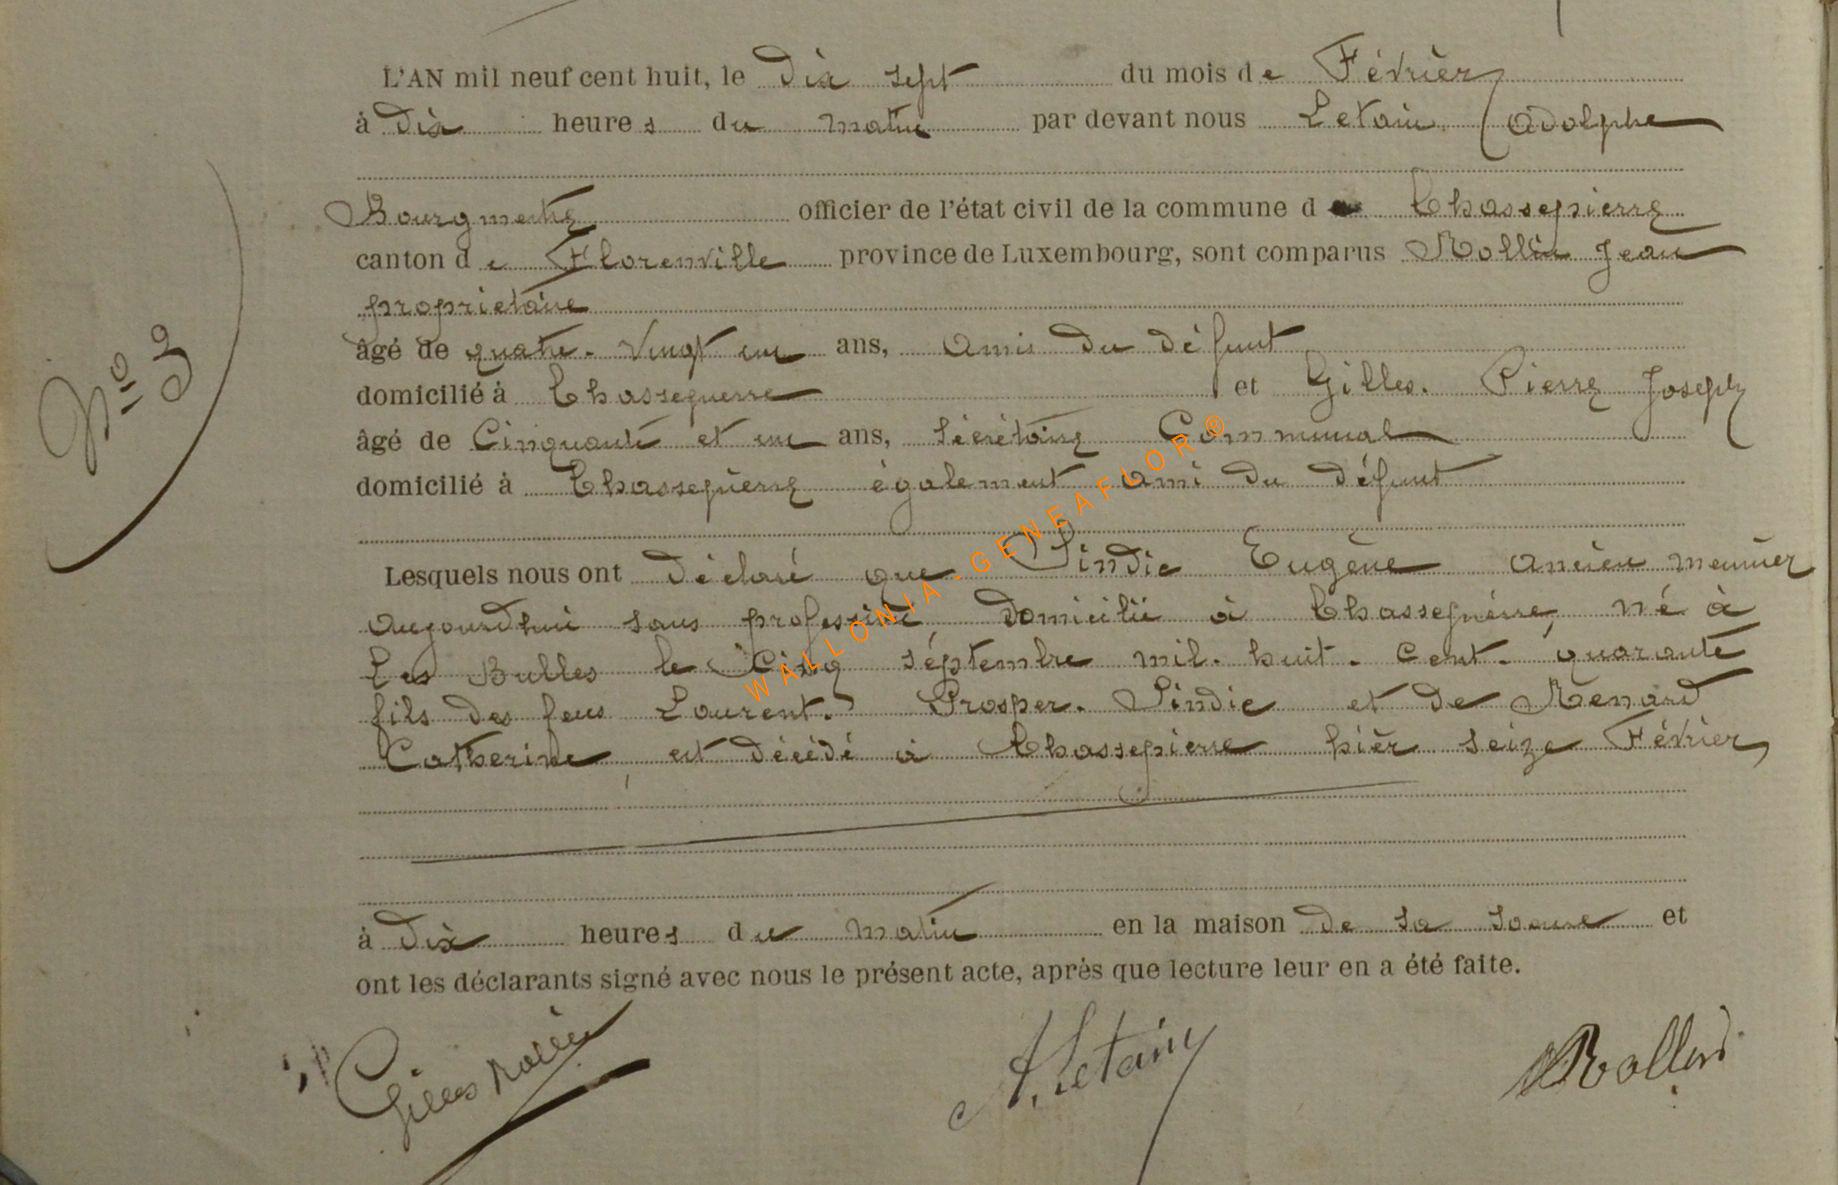 L'AN mil neuf cent huit, le Dix sept du mois de Février
à Dix heures du matin par devant nous Letain Adolphe
Bourgmestre officier de l'état civil de la commune de Chassepierre
canton de Florenville province de Luxembourg, sont comparus Rollin Jean
propriétaire
âgé de quatre-vingt un ans, amis du défunt
domicilié à Chassepierre et Gilles. Pierre Joseph
âgé de Cinquante et un ans, sécrétaire Communal
domicilié à Chassepierre également ami du défunt
N° 3
Lesquels nous ont déclaré que Sindic Eugène ancien meunier
aujourdhui sans profession, domicilié à Chassepierre, né à
Les Bulles le Cinq séptembre mil. huit. cent. quarante
fils des feus Laurent. Prosper. Sindic et de Renard
Catherine, est décédé à Chassepierre hièr seize Février,
à dix heures du matin en la maison de sa soeur et
ont les déclarants signé avec nous le présent acte, après que lecture leur en a été faite.
Gilles Rollin A. Letain JRollin
WALLONIA-GENEAFLOR®